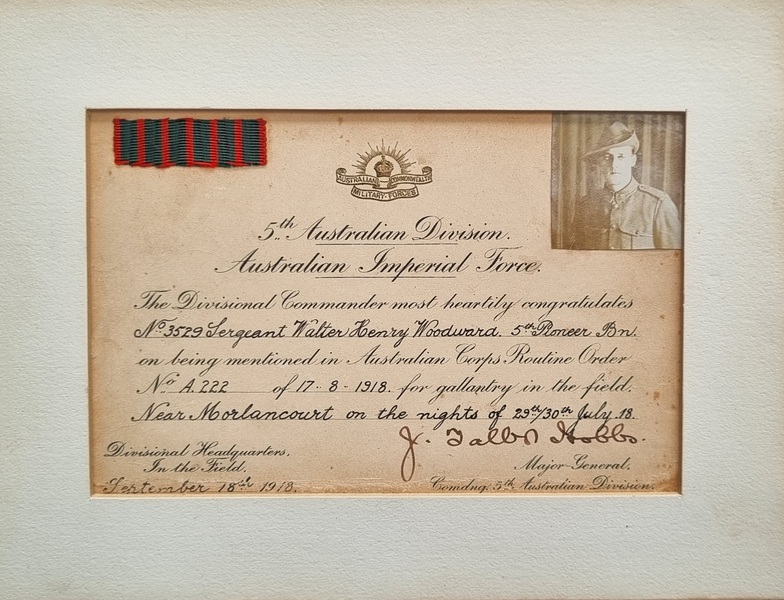 AUSTRALIAN COMMONWEALTH
MILITARY FORCES
5th Australian Division.
Australian Imperial Force.
The Divisional Commander most heartily congratulates
No 3529 Sergeant Walter Henry Woodward. 5th Pioneer Bn.
on being mentioned in Australian Corps Routine Order
No A.222 of 17-8-1918. for gallantry in the field.
Near Morlancourt on the nights of 29th/30th July.18.
J. Talbot Hobbs.
Divisional Headquarters,
In the Field.
Major-General.
September 18th 1918.
Comdng. 5th Australian Division.